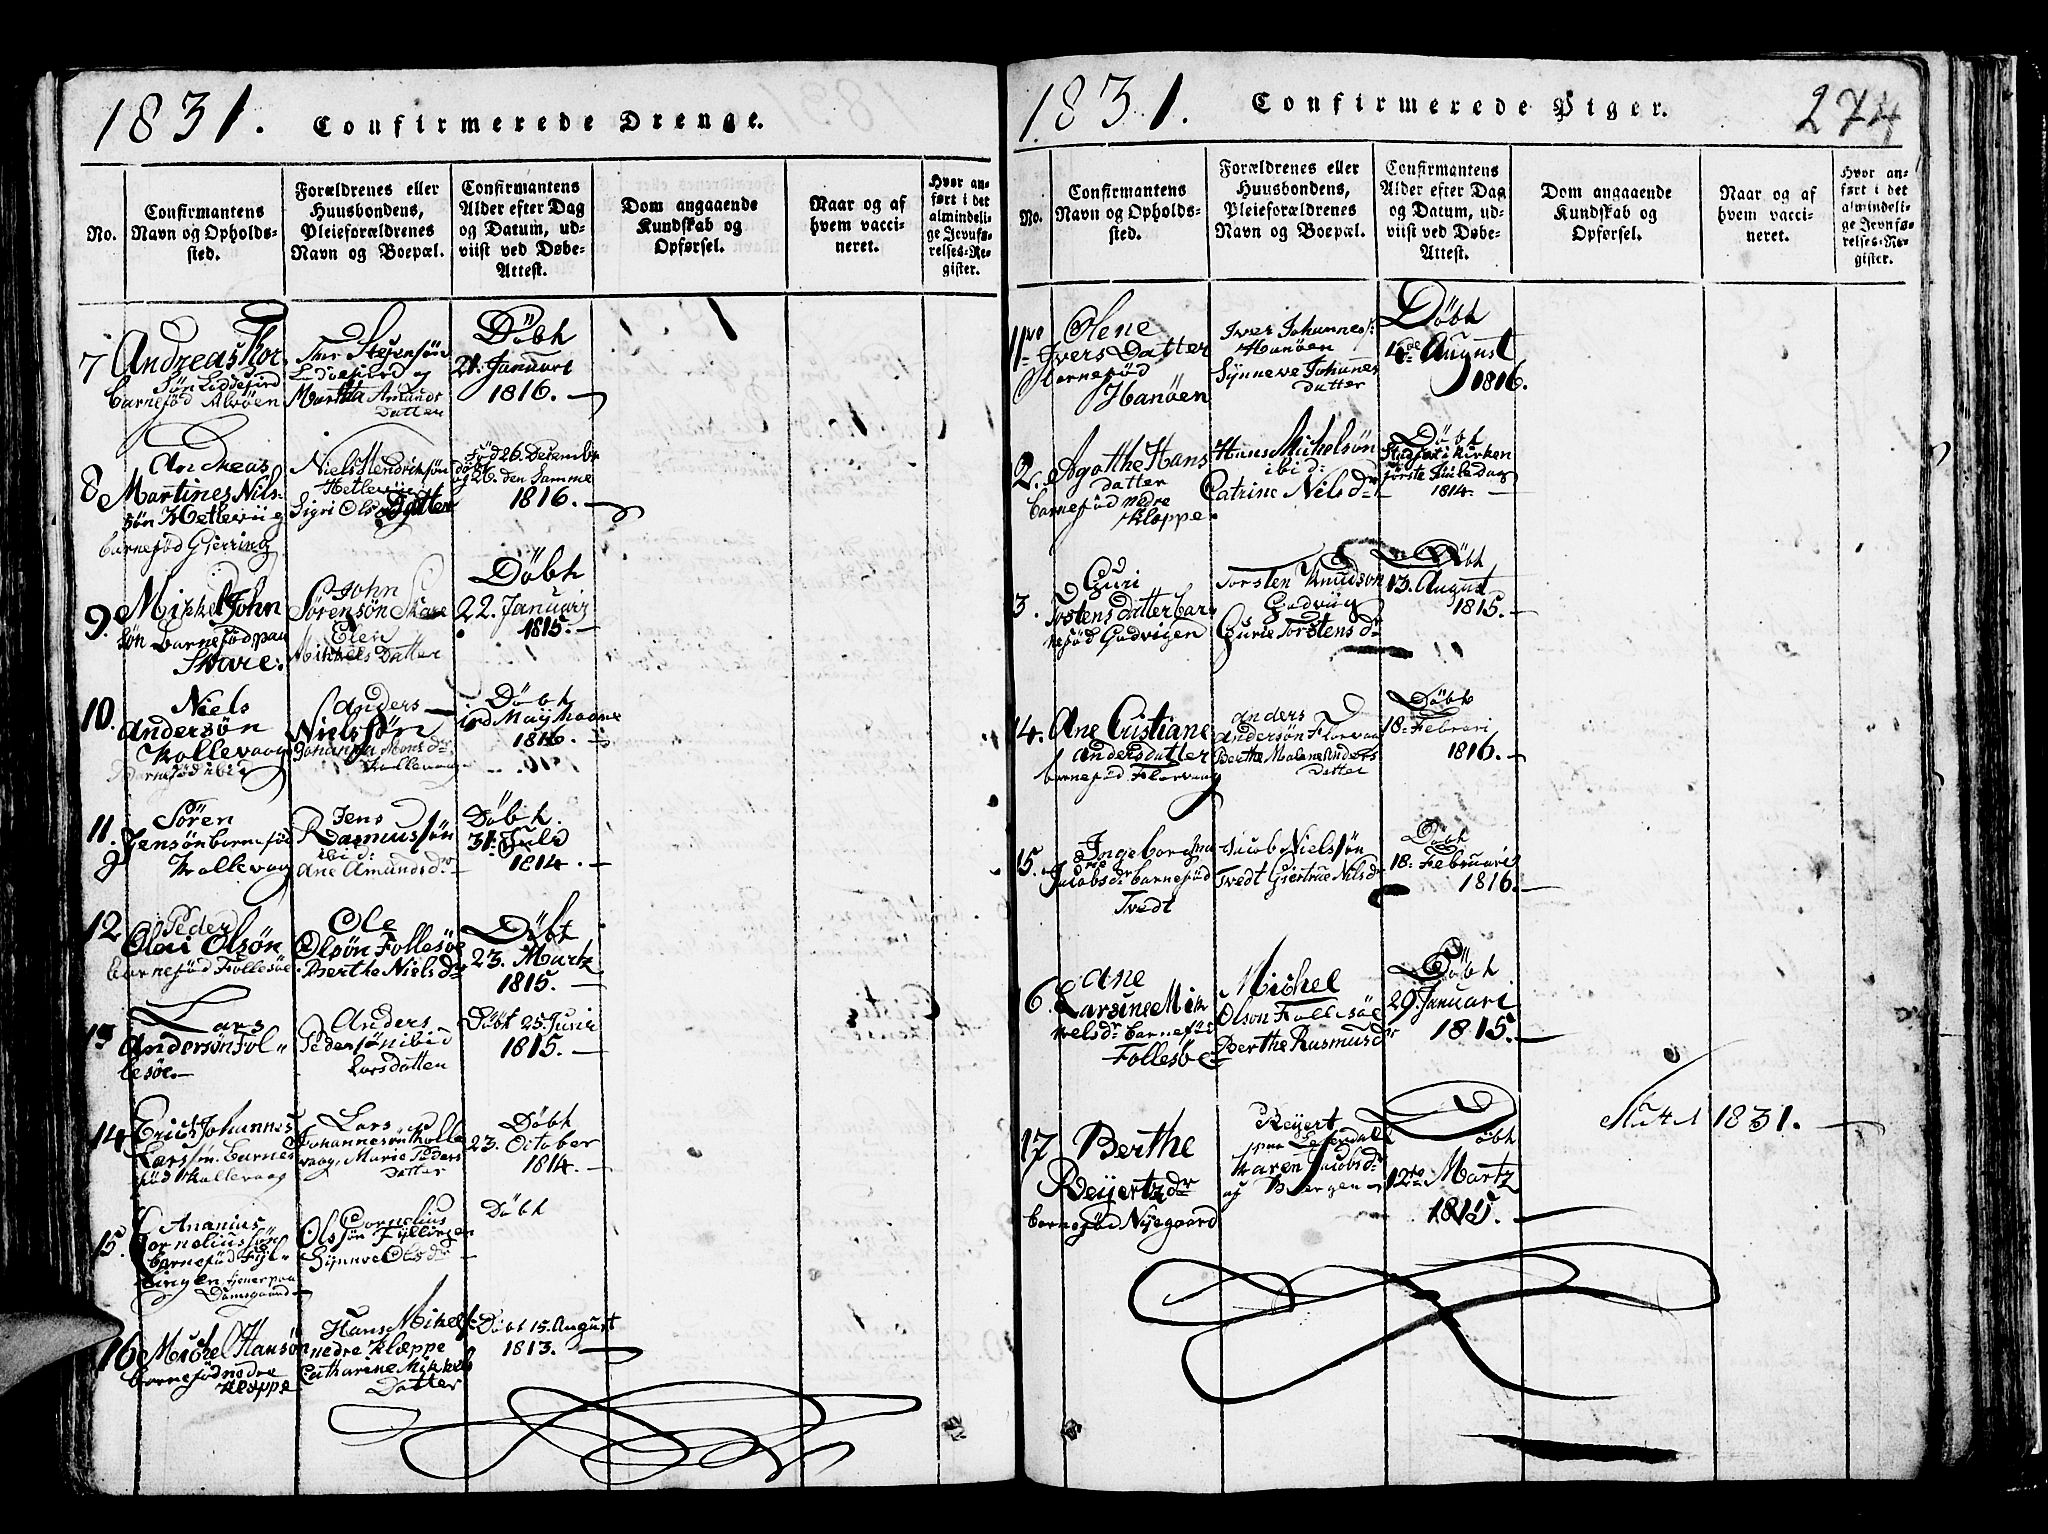 1831. Confirmerede Drenge.
No.
Confirmantens
Navn og Opholds-
sted.
Forældrenes eller
Huusbondens,
Pleieforældrenes
Navn og Boepæl.
Confirmantens
Alder efter Dag
og Datum, ud-
viist ved Døbe-
Attest.
Dom angaaende
Kundskab og
Opførsel.
Naar og af
hvem vacci-
neret.
Hvor an-
ført i det
almindeli-
ge Jevnfø-
relses-Re-
gister.
7
Andreas Thor
Søn
barnefød Alvøen
Martha Amunds
Datter
Döbt
21 Januari
1816.
8
Andreas
Martines Nils-
søn Hetleviig
barnefød Gjerring
Niels Hendriksøn
Hetleviig
Sigri Ols Datter
Fød 26. December
døbt
og 26. den Samme
1816.
9.
Mikkel John
søn barnefød paa
Skare.
John
Sørensøn Skare
Elen
Mikkels Datter
Döbt
22. Januair
1815.
10.
Niels
Andersøn
Kollevaag
Barnefød ibid
Anders
Nielssøn
Johanna Mons dr.
Kollevaag
Döbt
1816.
11.
Søren
Jensøn barnefød
Kollevaag
Jens
Rasmussøn
ibid:
Ane Amunds dr
Döbt.
31. Juli
1814.
12
Peder
Oleri Olsøn
barnefød Follesøe
Ole
Olsøn Follesøe
Berthe Niels dr
Döbt
23. Martz
1815.
13
Lars
Andersøn Fol-
lesøe.
Anders
Pedersøn ibid
Larsdatter
Döbt 25. Juni
1815.
14
Erich Johannes
Larssøn. barne-
fød Kollevaag
Lars
Johannesøn Kolle
vaag, Marie Peders
Datter
Döbt
23. October
1814.
15.
Ananius
Corneliussøn
barnefød Fyl-
lingen tjener paa
Damsgaard
Cornelius
Olssøn Fyllingen
Synneve Ols dr
Döbt
16
Michel Hansøn
barnefød nedre
Kleppe
Hans Mikels:
nedre Klæppe
Catharine Mikkels
Datter
Döbt 15. August
1813.
1831. Confirmerede Piger. 274
No.
Confirmantens
Navn og Opholds-
sted.
Forældrenes eller
Huusbondens,
Pleieforældrenes
Navn og Boepæl.
Confirmantens
Alder efter Dag
og Datum, ud-
viist ved Døbe-
Attest.
Dom angaaende
Kundskab og
Opførsel.
Naar og af
hvem vacci-
neret.
Hvor an-
ført i det
almindeli-
ge Jevnfø-
relses-Re-
gister.
Olene
Ivers Datter
barnefød
Hanøen
Iver Johannes:
Hanøen
Synneve Johannes
Datter
Döbt
August
1816.
2.
Agathe Hans
datter
barnefød nedre
Klæppe.
Hans Michelsøn
ibid:
Catrine Nils dr
Döbt
Stadfæst i Kirken
første Juule Dag
1814.
3.
Guri
Torstens datter bar
nefød Gudvigen
Torsten Knudsøn
Gudviig
Gurie Torstens dr
Döbt
13. August
1815.
14.
Ane Cristiane
Andersdatter
barnefød Florvaag
Anders
Andersøn Florvaa
Berthe Malene Anders
Datter
Döbt
18. Februari
1816.
15.
Ingebor
Jacobs dr barnefød
Tvedt
Jacob Nielssøn
Tvedt Giertrue Nils dr
Döbt
18. Februari
1816.
16.
Ane
Larsine Mik
kels dr barnefød
Follesøe
Michel
Olson Follesøe
Berthe Rasmus dr
Döbt
29. Januari
1815.
17
Berthe
Reijertz dr
barnefød Nyegaard
Reyert
paa
Karen Jacobs dr
af Bergen
Döbt
12te Martz
1815.
1831.